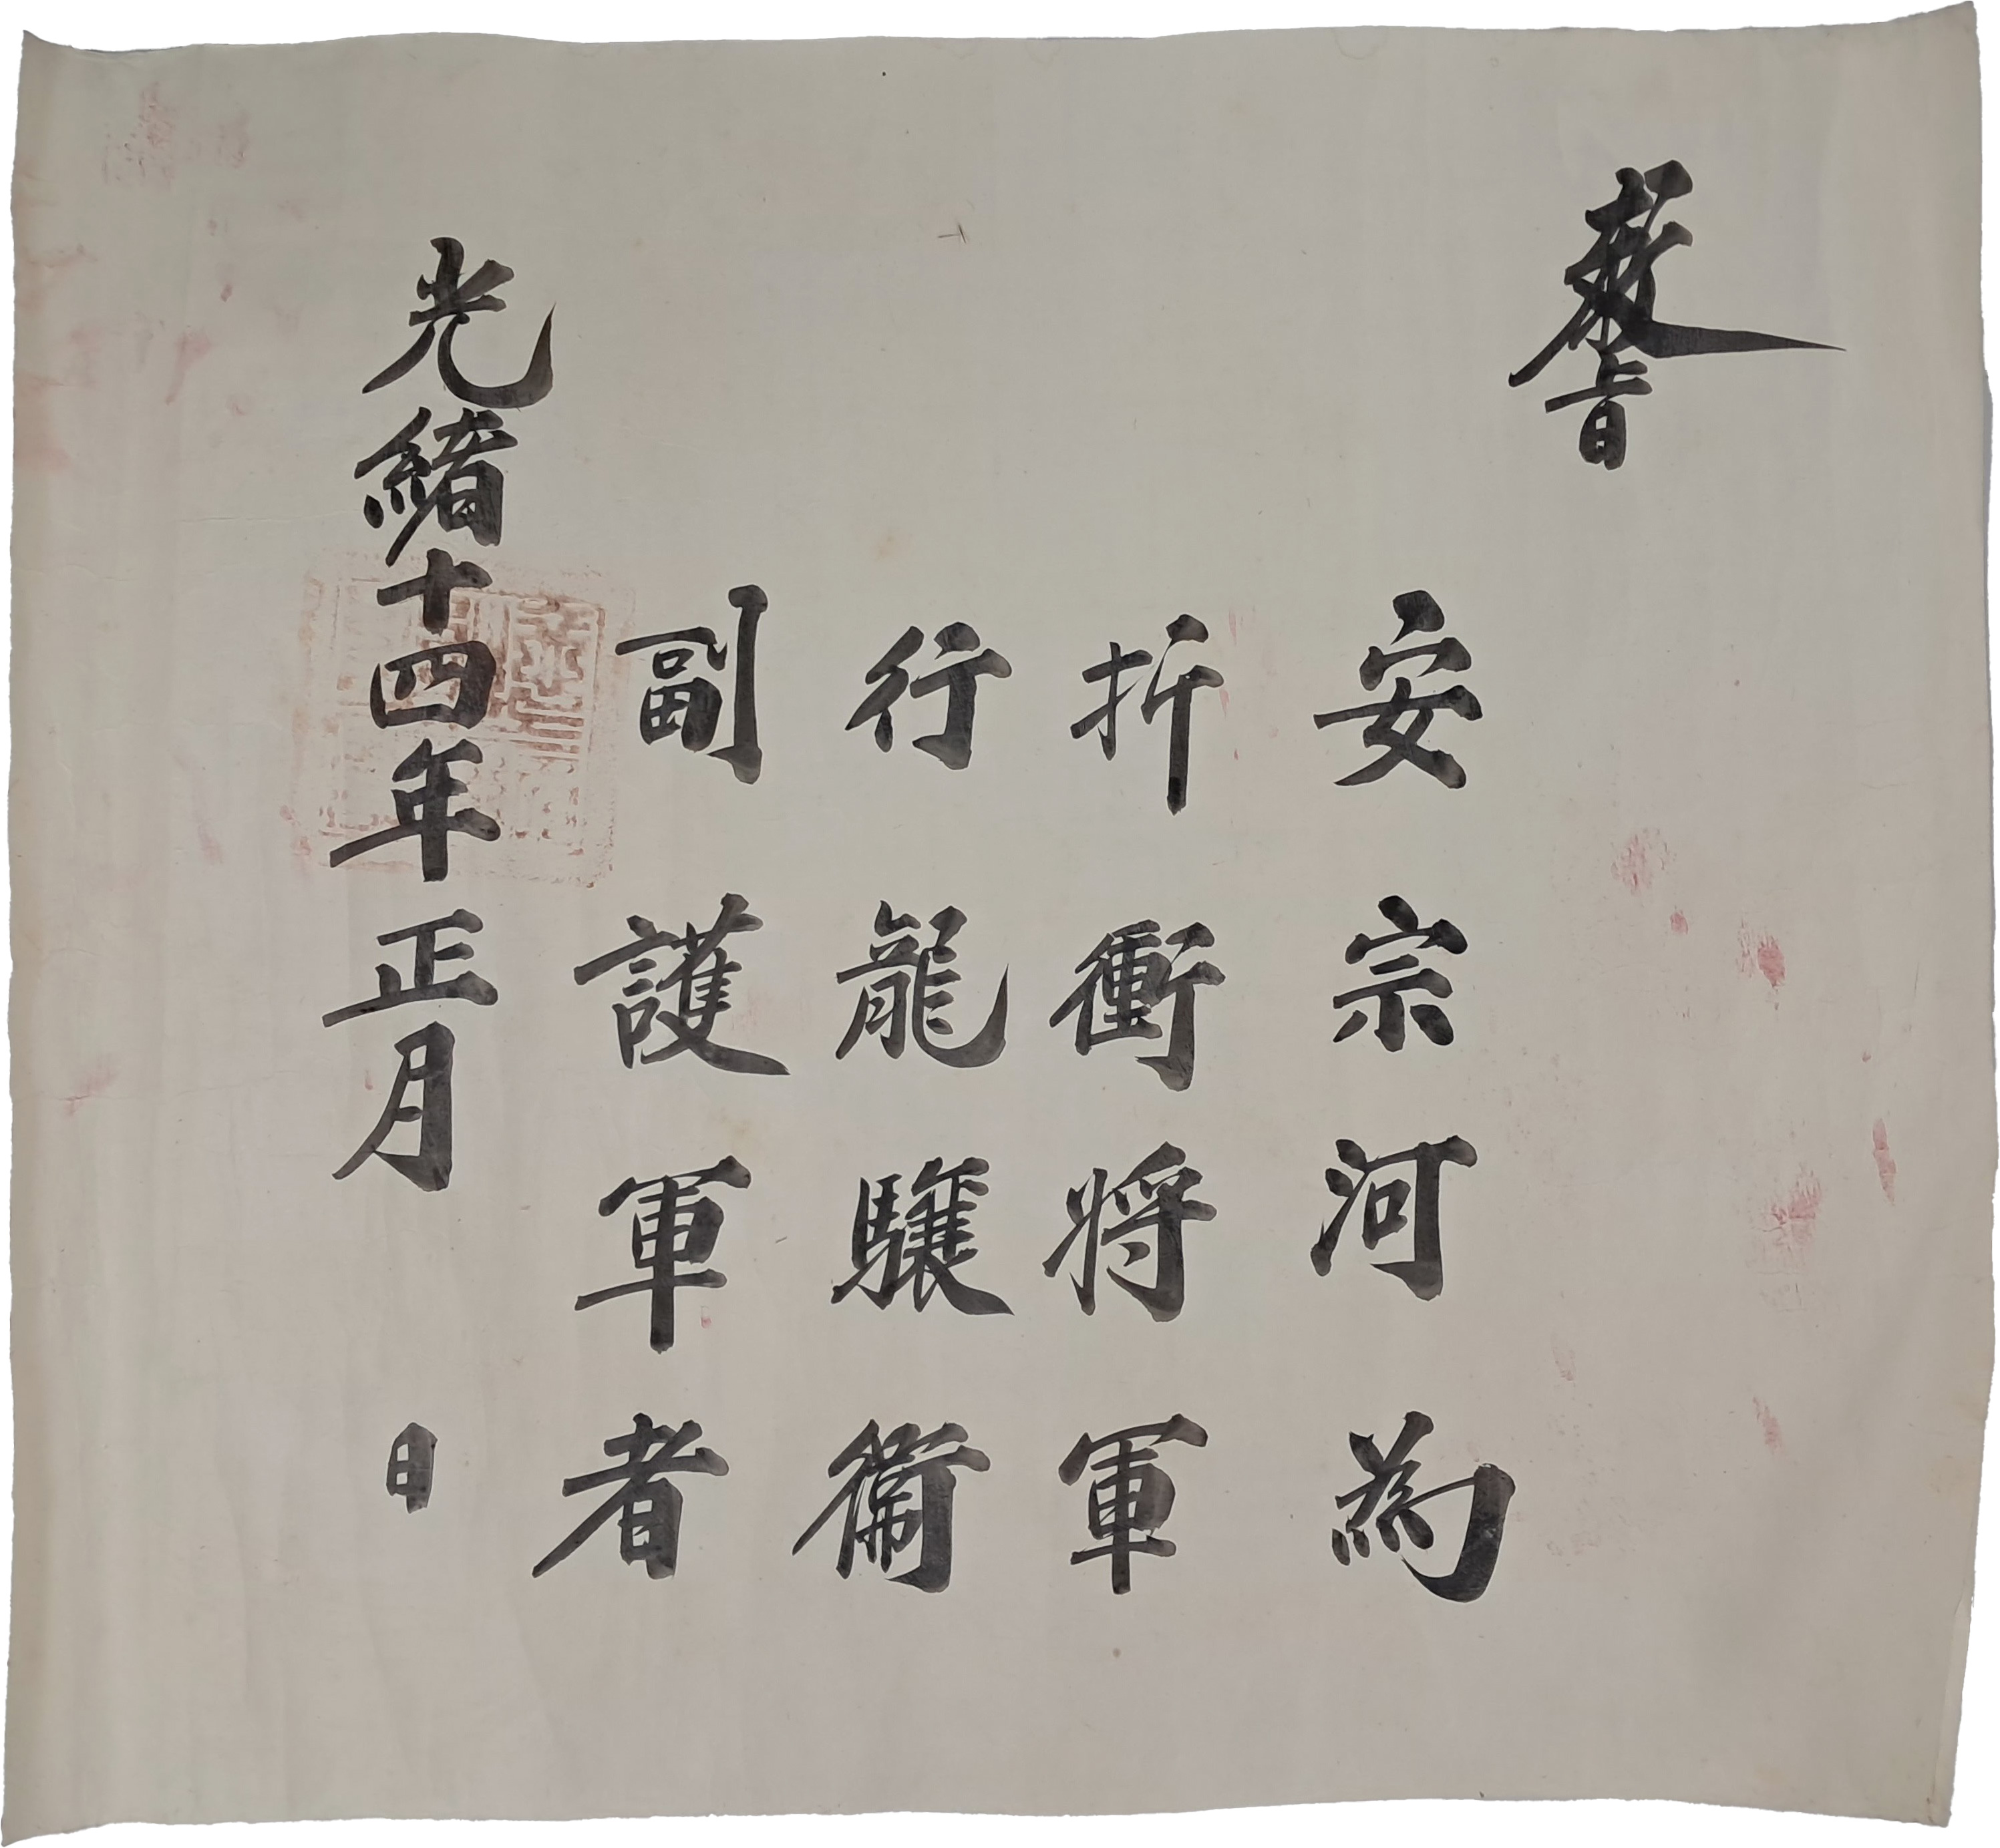 教旨
安宗河為
折衝將軍
行龍驤衛
副護軍者
光緒十四年正月　日